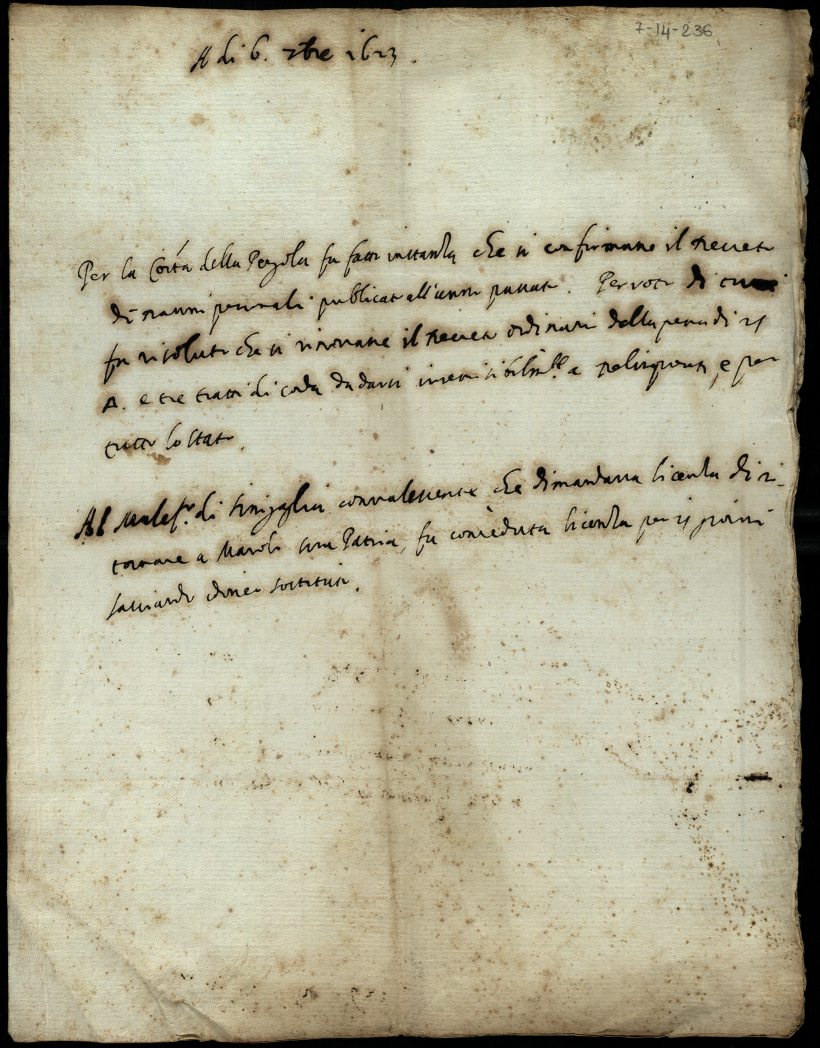 7-14-236
A di 6. 7bre 1623.
Per la Co͞ità della Pergola fu fatto instanza che si confirmasse il Decreto
di danni publicato all'anno passato. Per voto di
fu risoluto che si rinovasse il Decreto ordinario della pena di 25
e tre tratti di corda da darsi a Delinquenti, e per
tutto lo stato.
Al Malef.º di Sinigaglia convalescente che dimandava licenza di ri-
tornare a sua Patria, fu conceduta licenza per 15 giorni
lasciando sostituto.